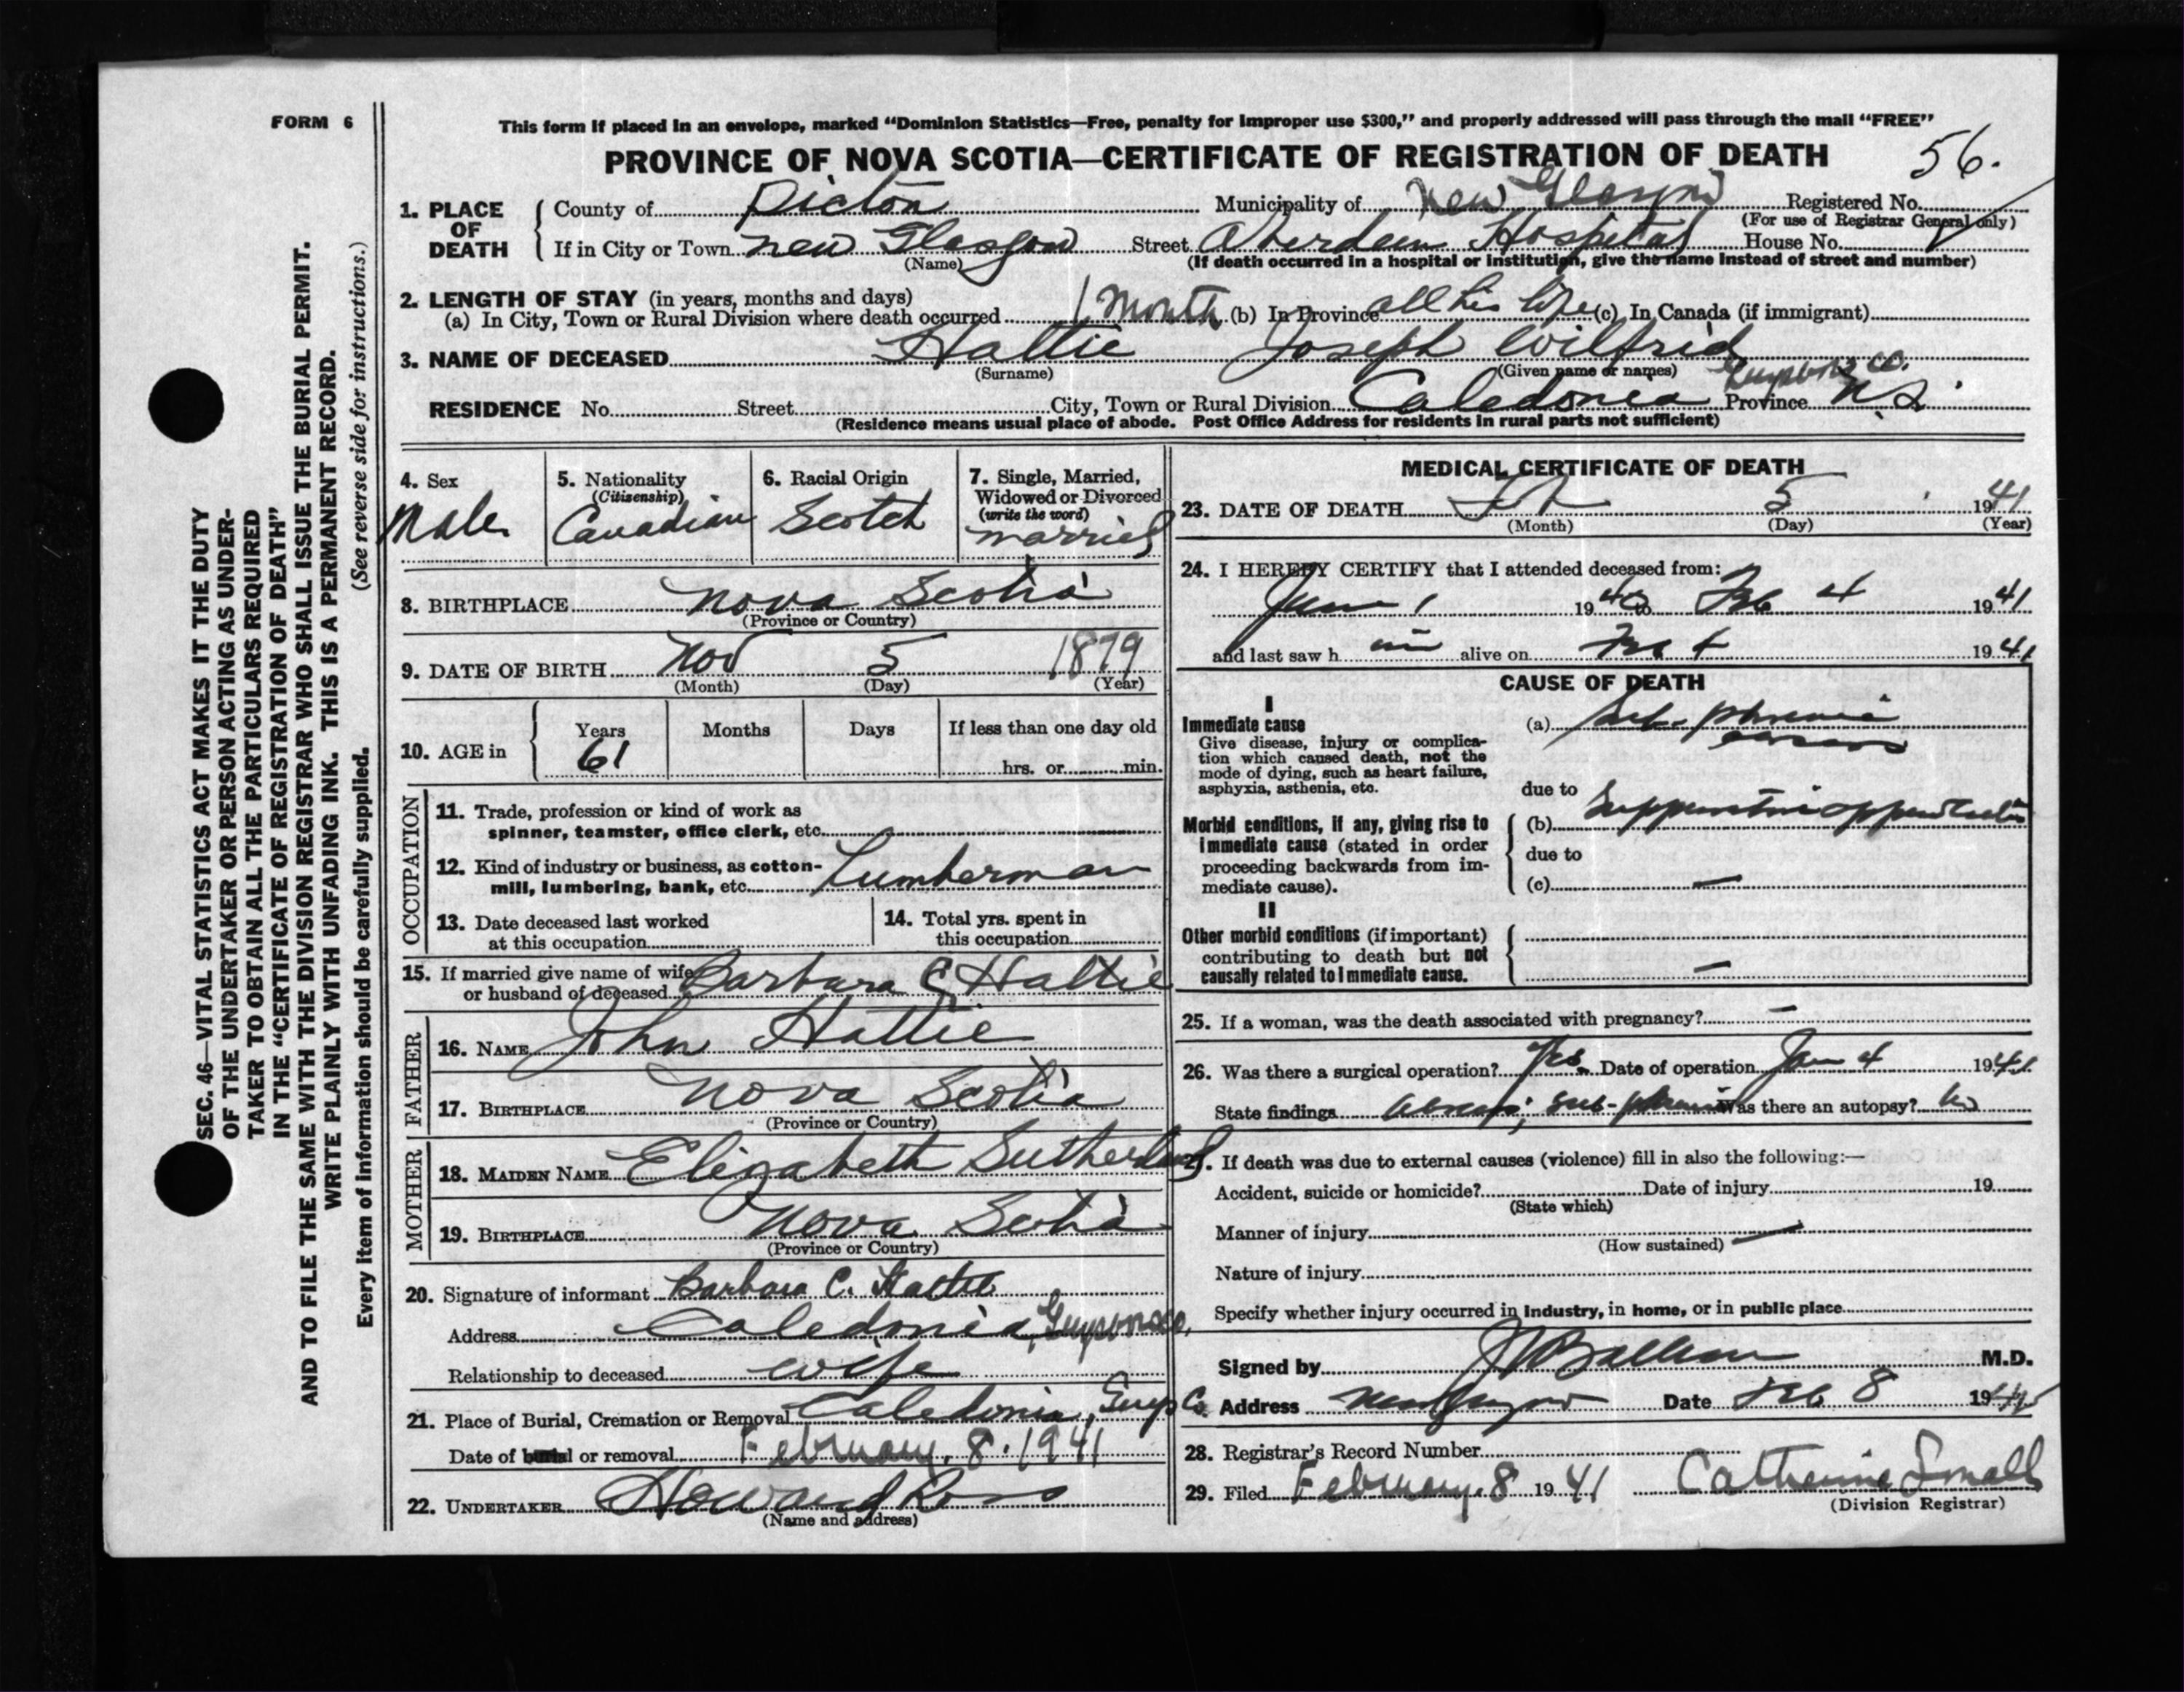 FORM 6
This form if placed in an envelope, marked “Dominion Statistics—Free, penalty for improper use $300,” and properly addressed will pass through the mail “FREE”
PROVINCE OF NOVA SCOTIA—CERTIFICATE OF REGISTRATION OF DEATH 56.
1. PLACE OF DEATH
County of Pictou Municipality of New Glasgow Registered No.
(For use of Registrar General only)
If in City or Town New Glasgow Street Aberdeen Hospital House No.
(Name) (If death occurred in a hospital or institution, give the name instead of street and number)
2. LENGTH OF STAY (in years, months and days)
(a) In City, Town or Rural Division where death occurred 1 Month (b) In Province all his life (c) In Canada (if immigrant)
3. NAME OF DECEASED Hattie Joseph Wilfrid
(Surname) (Given name or names)
Guysboro Co.
RESIDENCE No. Street City, Town or Rural Division Caledonia Province N.S.
(Residence means usual place of abode. Post Office Address for residents in rural parts not sufficient)
4. Sex
Male
5. Nationality
(Citizenship)
Canadian
6. Racial Origin
Scotch
7. Single, Married,
Widowed or Divorced
(write the word)
married
8. BIRTHPLACE Nova Scotia
(Province or Country)
9. DATE OF BIRTH Nov 5 1879
(Month) (Day) (Year)
10. AGE in
Years Months Days If less than one day old
61 hrs. or min.
OCCUPATION
11. Trade, profession or kind of work as
spinner, teamster, office clerk, etc.
12. Kind of industry or business, as cotton-
mill, lumbering, bank, etc. Lumberman
13. Date deceased last worked
at this occupation
14. Total yrs. spent in
this occupation
15. If married give name of wife
or husband of deceased Barbara C Hattie
FATHER
16. NAME John Hattie
17. BIRTHPLACE Nova Scotia
(Province or Country)
MOTHER
18. MAIDEN NAME Elizabeth Sutherland
19. BIRTHPLACE Nova Scotia
(Province or Country)
20. Signature of informant Barbara C. Hattie
Address Caledonia, Guysboro Co.
Relationship to deceased wife
21. Place of Burial, Cremation or Removal Caledonia, Guys Co.
Date of burial or removal February. 8. 1941
22. UNDERTAKER Howard Ross
(Name and address)
MEDICAL CERTIFICATE OF DEATH
23. DATE OF DEATH Feb 5 1941
(Month) (Day) (Year)
24. I HEREBY CERTIFY that I attended deceased from:
1 1940 to Feb 4 1941
and last saw h im alive on Feb 4 1941
CAUSE OF DEATH
I
Immediate cause
Give disease, injury or complica-
tion which caused death, not the
mode of dying, such as heart failure,
asphyxia, asthenia, etc.
(a) Sub-phrenic
abscess
due to
Morbid conditions, if any, giving rise to
immediate cause (stated in order
proceeding backwards from im-
mediate cause).
(b) Suppurative appendicitis
due to
(c) —
II
Other morbid conditions (if important)
contributing to death but not
causally related to immediate cause. —
25. If a woman, was the death associated with pregnancy? —
26. Was there a surgical operation? Yes. Date of operation Jan 4 1941
State findings abscess; sub-phrenic Was there an autopsy? No
27. If death was due to external causes (violence) fill in also the following:—
Accident, suicide or homicide? Date of injury 19
(State which)
Manner of injury —
(How sustained)
Nature of injury
Specify whether injury occurred in industry, in home, or in public place
Signed by M.D.
Address New Glasgow Date Feb 8 1941
28. Registrar's Record Number
29. Filed February. 8 1941 Catherine Small
(Division Registrar)
SEC. 46—VITAL STATISTICS ACT MAKES IT THE DUTY
OF THE UNDERTAKER OR PERSON ACTING AS UNDER-
TAKER TO OBTAIN ALL THE PARTICULARS REQUIRED
IN THE “CERTIFICATE OF REGISTRATION OF DEATH”
AND TO FILE THE SAME WITH THE DIVISION REGISTRAR WHO SHALL ISSUE THE BURIAL PERMIT.
WRITE PLAINLY WITH UNFADING INK. THIS IS A PERMANENT RECORD.
Every item of information should be carefully supplied. (See reverse side for instructions.)